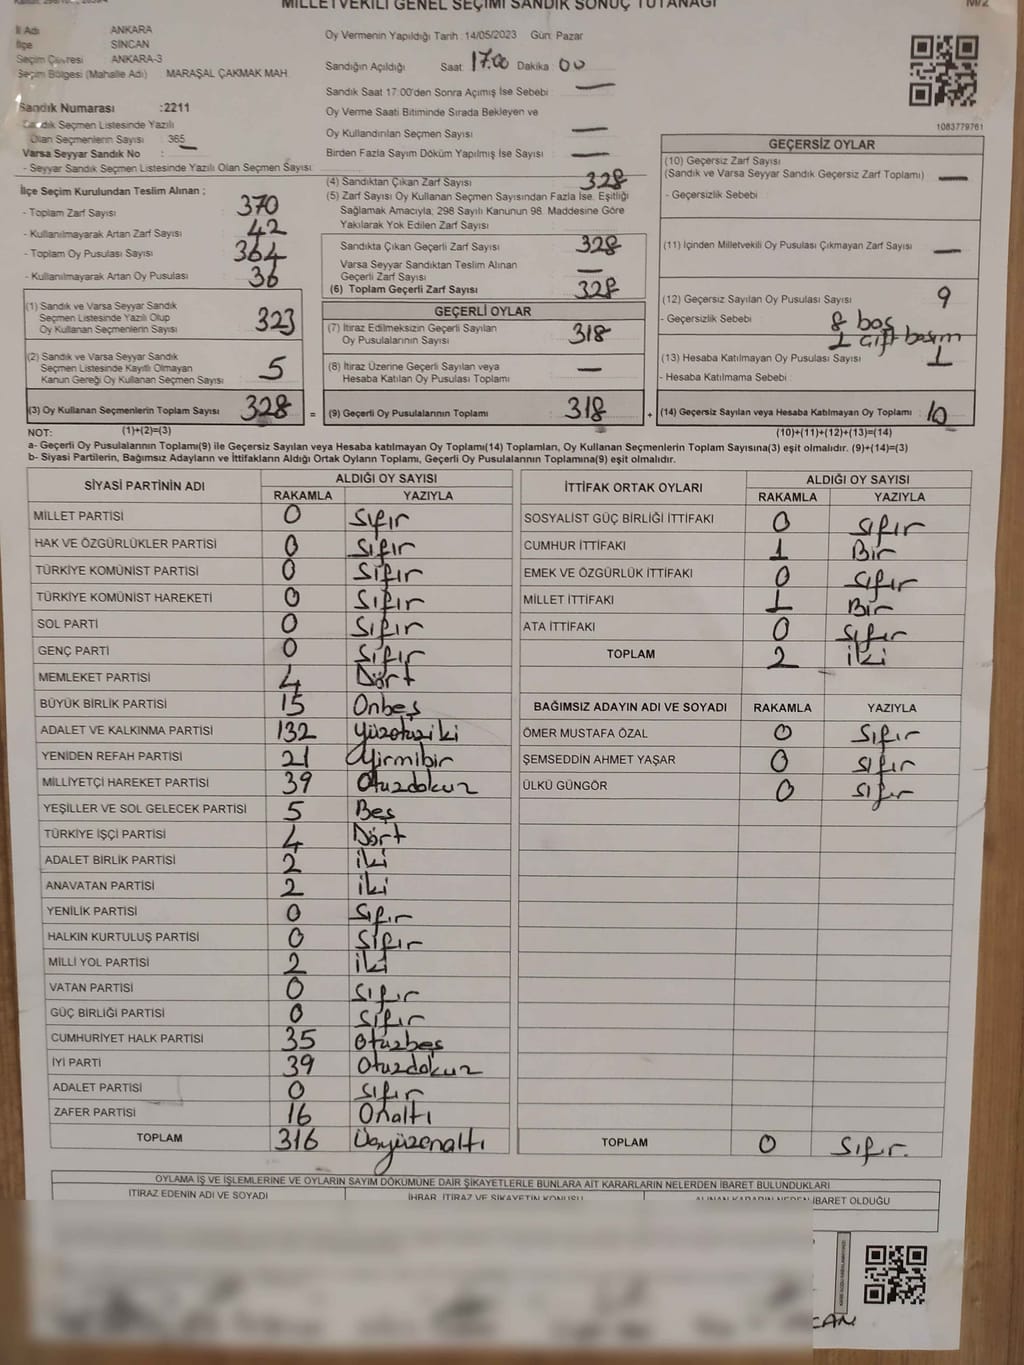 MİLLETVEKİLİ GENEL SEÇİMİ SANDIK SONUÇ TUTANAĞI
M/2
İl Adı ANKARA
İlçe SİNCAN
Seçim Çevresi ANKARA-3
Seçim Bölgesi (Mahalle Adı) MARAŞAL ÇAKMAK MAH.
Sandık Numarası :2211
Sandık Seçmen Listesinde Yazılı
Olan Seçmenlerin Sayısı 365
Varsa Seyyar Sandık No
- Seyyar Sandık Seçmen Listesinde Yazılı Olan Seçmen Sayısı
İlçe Seçim Kurulundan Teslim Alınan ;
- Toplam Zarf Sayısı 370
- Kullanılmayarak Artan Zarf Sayısı 42
- Toplam Oy Pusulası Sayısı 364
- Kullanılmayarak Artan Oy Pusulası 36
(1) Sandık ve Varsa Seyyar Sandık
Seçmen Listesinde Yazılı Olup
Oy Kullanan Seçmenlerin Sayısı 323
(2) Sandık ve Varsa Seyyar Sandık
Seçmen Listesinde Kayıtlı Olmayan
Kanun Gereği Oy Kullanan Seçmen Sayısı 5
(3) Oy Kullanan Seçmenlerin Toplam Sayısı 328 =
Oy Vermenin Yapıldığı Tarih : 14/05/2023 Gün: Pazar
Sandığın Açıldığı Saat: 17.00 Dakika 00
Sandık Saat 17:00'den Sonra Açımış İse Sebebi : —
Oy Verme Saati Bitiminde Sırada Bekleyen ve
Oy Kullandırılan Seçmen Sayısı —
Birden Fazla Sayım Döküm Yapılmış İse Sayısı : —
(4) Sandıktan Çıkan Zarf Sayısı 328
(5) Zarf Sayısı Oy Kullanan Seçmen Sayısından Fazla İse, Eşitliği
Sağlamak Amacıyla; 298 Sayılı Kanunun 98. Maddesine Göre
Yakılarak Yok Edilen Zarf Sayısı
Sandıkta Çıkan Geçerli Zarf Sayısı 328
Varsa Seyyar Sandıktan Teslim Alınan
Geçerli Zarf Sayısı —
(6) Toplam Geçerli Zarf Sayısı 328
GEÇERLİ OYLAR
(7) İtiraz Edilmeksizin Geçerli Sayılan
Oy Pusulalarının Sayısı 318
(8) İtiraz Üzerine Geçerli Sayılan veya
Hesaba Katılan Oy Pusulası Toplamı —
(9) Geçerli Oy Pusulalarının Toplamı 318 +
1083779761
GEÇERSİZ OYLAR
(10) Geçersiz Zarf Sayısı
(Sandık ve Varsa Seyyar Sandık Geçersiz Zarf Toplamı) —
- Geçersizlik Sebebi :
(11) İçinden Milletvekili Oy Pusulası Çıkmayan Zarf Sayısı : —
(12) Geçersiz Sayılan Oy Pusulası Sayısı 9
- Geçersizlik Sebebi 8 boş
1 çift basım
(13) Hesaba Katılmayan Oy Pusulası Sayısı 1
- Hesaba Katılmama Sebebi :
(14) Geçersiz Sayılan veya Hesaba Katılmayan Oy Toplamı : 10
NOT: (1)+(2)=(3) (10)+(11)+(12)+(13)=(14)
a- Geçerli Oy Pusulalarının Toplamı(9) ile Geçersiz Sayılan veya Hesaba katılmayan Oy Toplamı(14) Toplamları, Oy Kullanan Seçmenlerin Toplam Sayısına(3) eşit olmalıdır. (9)+(14)=(3)
b- Siyasi Partilerin, Bağımsız Adayların ve İttifakların Aldığı Ortak Oyların Toplamı, Geçerli Oy Pusulalarının Toplamına(9) eşit olmalıdır.
SİYASİ PARTİNİN ADI ALDIĞI OY SAYISI
RAKAMLA YAZIYLA
MİLLET PARTİSİ 0 Sıfır
HAK VE ÖZGÜRLÜKLER PARTİSİ 0 Sıfır
TÜRKİYE KOMÜNİST PARTİSİ 0 Sıfır
TÜRKİYE KOMÜNİST HAREKETİ 0 Sıfır
SOL PARTİ 0 Sıfır
GENÇ PARTİ 0 Sıfır
MEMLEKET PARTİSİ 4 Dört
BÜYÜK BİRLİK PARTİSİ 15 Onbeş
ADALET VE KALKINMA PARTİSİ 132 Yüzotuziki
YENİDEN REFAH PARTİSİ 21 Yirmibir
MİLLİYETÇİ HAREKET PARTİSİ 39 Otuzdokuz
YEŞİLLER VE SOL GELECEK PARTİSİ 5 Beş
TÜRKİYE İŞÇİ PARTİSİ 4 Dört
ADALET BİRLİK PARTİSİ 2 iki
ANAVATAN PARTİSİ 2 iki
YENİLİK PARTİSİ 0 Sıfır
HALKIN KURTULUŞ PARTİSİ 0 Sıfır
MİLLİ YOL PARTİSİ 2 iki
VATAN PARTİSİ 0 Sıfır
GÜÇ BİRLİĞİ PARTİSİ 0 Sıfır
CUMHURİYET HALK PARTİSİ 35 Otuzbeş
İYİ PARTİ 39 Otuzdokuz
ADALET PARTİSİ 0 Sıfır
ZAFER PARTİSİ 16 Onaltı
TOPLAM 316 Üçyüzonaltı
İTTİFAK ORTAK OYLARI ALDIĞI OY SAYISI
RAKAMLA YAZIYLA
SOSYALİST GÜÇ BİRLİĞİ İTTİFAKI 0 Sıfır
CUMHUR İTTİFAKI 1 Bir
EMEK VE ÖZGÜRLÜK İTTİFAKI 0 Sıfır
MİLLET İTTİFAKI 1 Bir
ATA İTTİFAKI 0 Sıfır
TOPLAM 2 iki
BAĞIMSIZ ADAYIN ADI VE SOYADI RAKAMLA YAZIYLA
ÖMER MUSTAFA ÖZAL 0 Sıfır
ŞEMSEDDİN AHMET YAŞAR 0 Sıfır
ÜLKÜ GÜNGÖR 0 Sıfır
TOPLAM 0 Sıfır.
OYLAMA İŞ VE İŞLEMLERİNE VE OYLARIN SAYIM DÖKÜMÜNE DAİR ŞİKAYETLERLE BUNLARA AİT KARARLARIN NELERDEN İBARET BULUNDUKLARI
İTİRAZ EDENİN ADI VE SOYADI İHBAR, İTİRAZ VE ŞİKAYETİN KONUSU ALINAN KARARIN NEDEN İBARET OLDUĞU
CAN